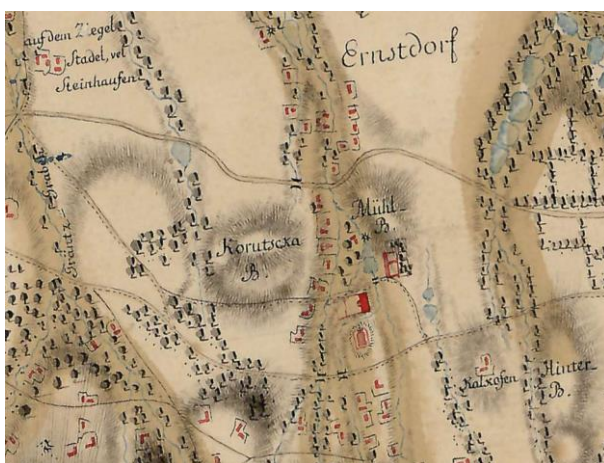 auf dem Ziegel
Stadel, vel
Steinhausen
Ernstdorf
Gräntz-Graben
Mühl-
B.
Korutscxa
B.
Kalxofen
Hinter-
B.